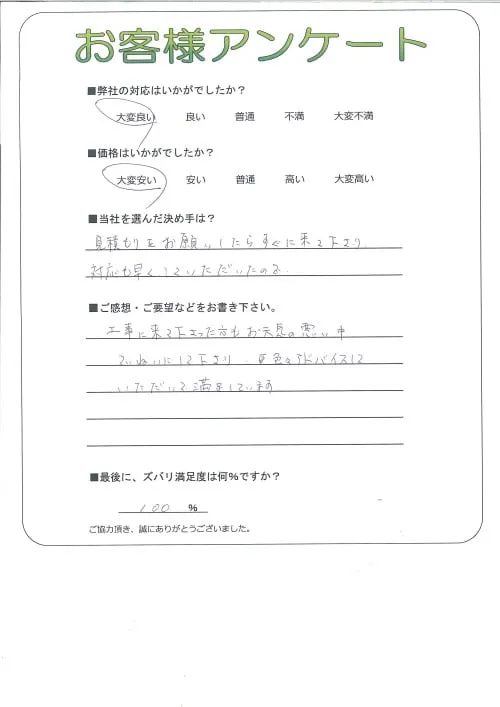 お客様アンケート
■弊社の対応はいかがでしたか?
大変良い 良い 普通 不満 大変不満
■価格はいかがでしたか?
大変安い 安い 普通 高い 大変高い
■当社を選んだ決め手は?
見積もりをお願いしたらすぐに来て下さり
対応も早くしていただいたので
■ご感想・ご要望などをお書き下さい。
工事に来て下さった方もお天気の悪い中
ていねいにして下さり 色々アドバイスして
いただいて満足しています
■最後に、ズバリ満足度は何%ですか?
100 %
ご協力頂き、誠にありがとうございました。